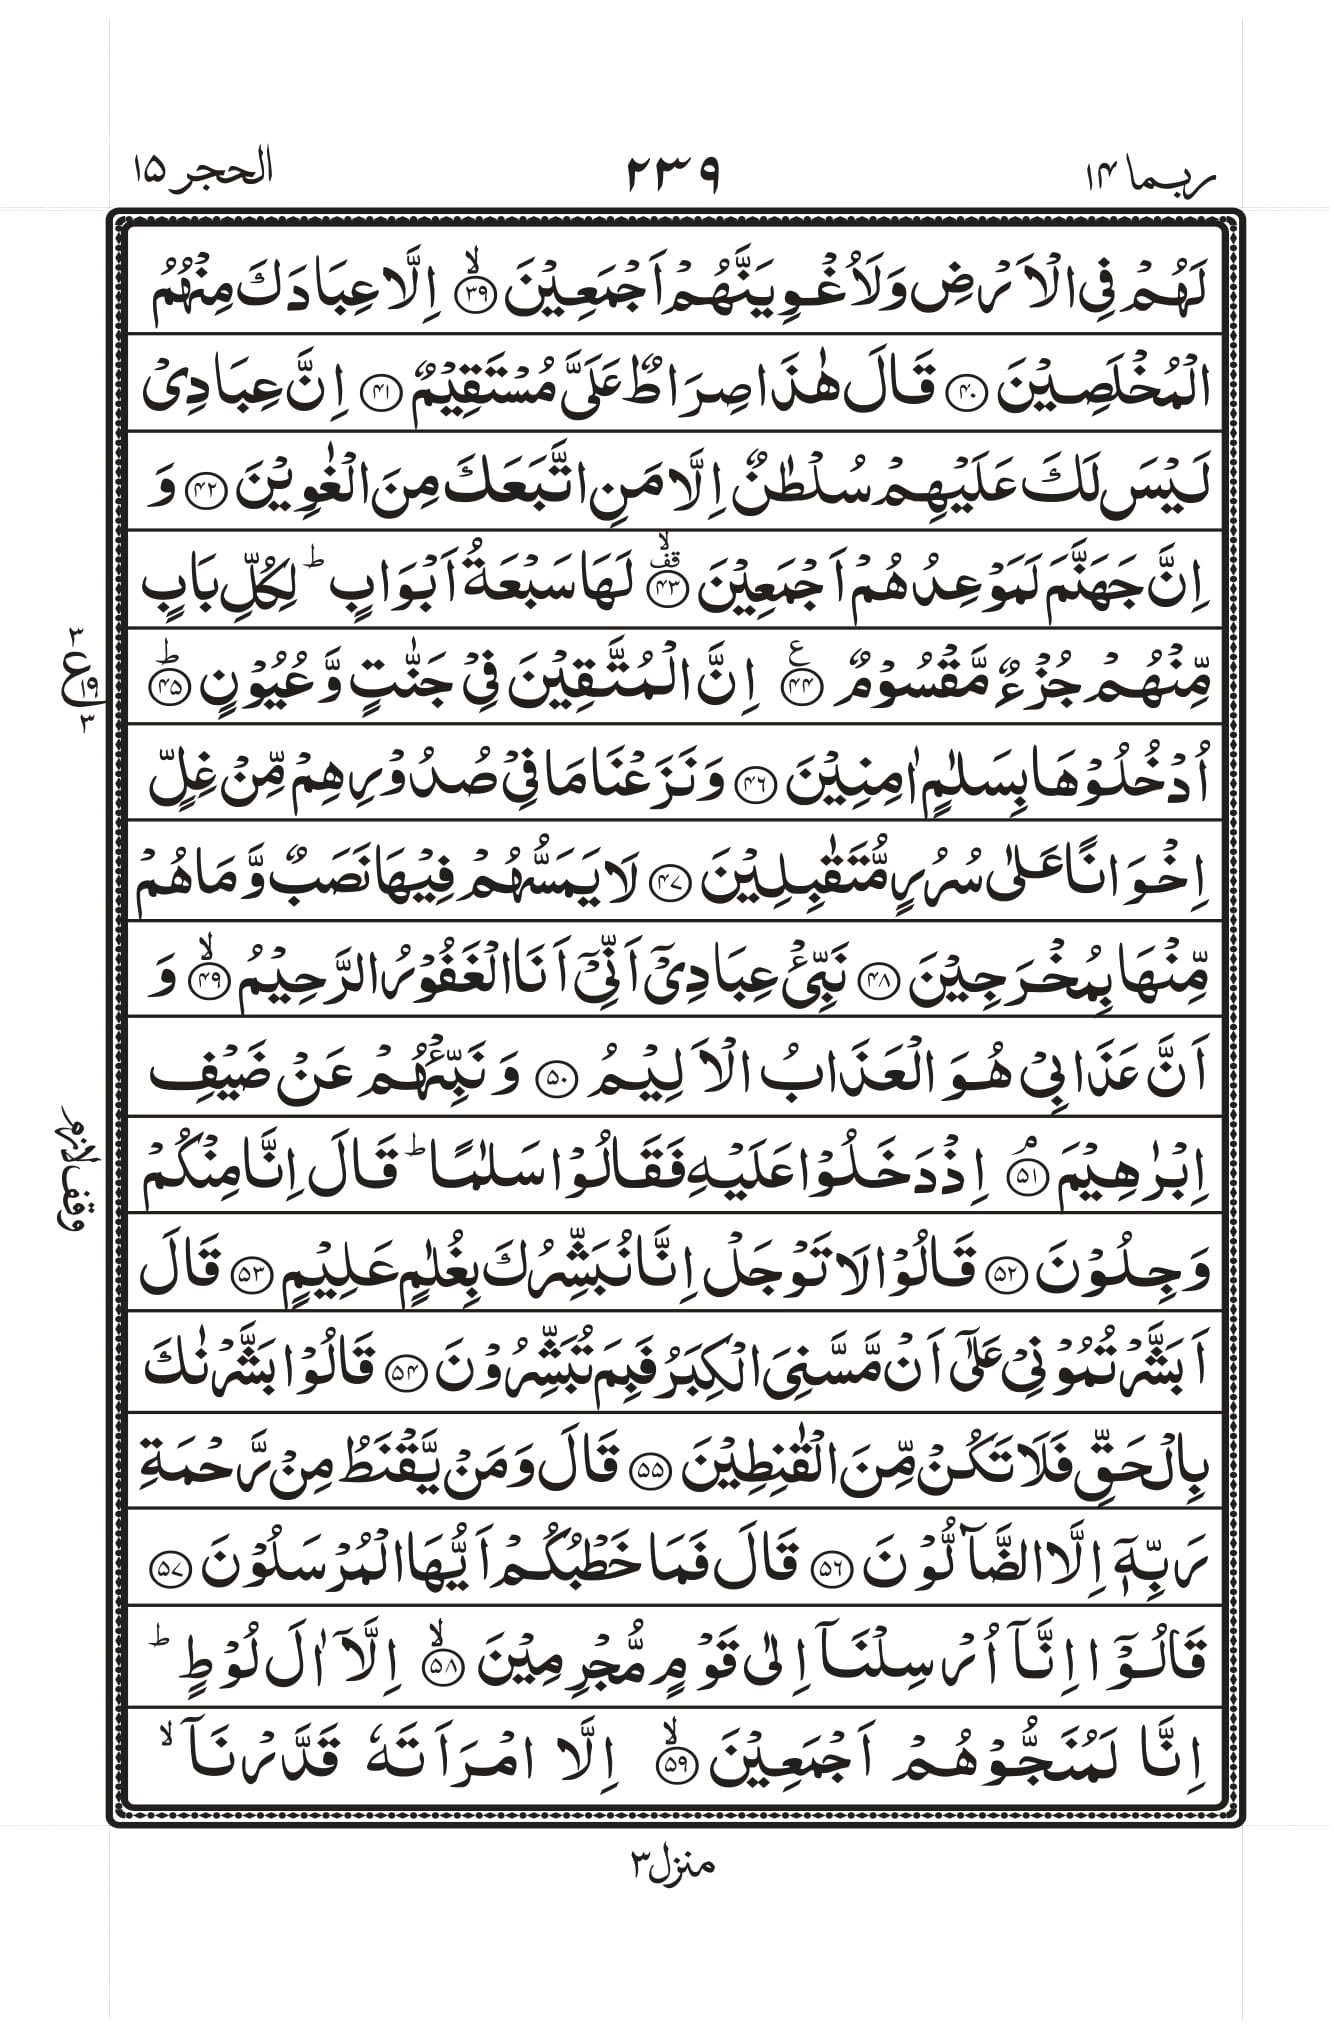 ربما ١٤ ٢٣٩ الحجر ١٥
لَهُمْ فِی الْاَرْضِ وَلَاُغْوِیَنَّهُمْ اَجْمَعِیْنَ ۙ﴿۳۹﴾ اِلَّا عِبَادَكَ مِنْهُمُ
الْمُخْلَصِیْنَ ﴿۴۰﴾ قَالَ هٰذَا صِرَاطٌ عَلَیَّ مُسْتَقِیْمٌ ﴿۴۱﴾ اِنَّ عِبَادِیْ
لَیْسَ لَكَ عَلَیْهِمْ سُلْطٰنٌ اِلَّا مَنِ اتَّبَعَكَ مِنَ الْغٰوِیْنَ ﴿۴۲﴾ وَ
اِنَّ جَهَنَّمَ لَمَوْعِدُهُمْ اَجْمَعِیْنَ ۟ۙ﴿۴۳﴾ لَهَا سَبْعَةُ اَبْوَابٍ ؕ لِكُلِّ بَابٍ
مِّنْهُمْ جُزْءٌ مَّقْسُوْمٌ ﴿۴۴﴾ ع اِنَّ الْمُتَّقِیْنَ فِیْ جَنّٰتٍ وَّ عُیُوْنٍ ﴿ؕ۴۵﴾
٣ ع ١٩ ٣
اُدْخُلُوْهَا بِسَلٰمٍ اٰمِنِیْنَ ﴿۴۶﴾ وَ نَزَعْنَا مَا فِیْ صُدُوْرِهِمْ مِّنْ غِلٍّ
اِخْوَانًا عَلٰی سُرُرٍ مُّتَقٰبِلِیْنَ ﴿۴۷﴾ لَا یَمَسُّهُمْ فِیْهَا نَصَبٌ وَّ مَا هُمْ
مِّنْهَا بِمُخْرَجِیْنَ ﴿۴۸﴾ نَبِّئْ عِبَادِیْۤ اَنِّیْۤ اَنَا الْغَفُوْرُ الرَّحِیْمُ ۙ﴿۴۹﴾ وَ
اَنَّ عَذَابِیْ هُوَ الْعَذَابُ الْاَلِیْمُ ﴿۵۰﴾ وَ نَبِّئْهُمْ عَنْ ضَیْفِ
اِبْرٰهِیْمَ ۘ﴿۵۱﴾ اِذْ دَخَلُوْا عَلَیْهِ فَقَالُوْا سَلٰمًا ؕ قَالَ اِنَّا مِنْكُمْ
وقف لازم
وَجِلُوْنَ ﴿۵۲﴾ قَالُوْا لَا تَوْجَلْ اِنَّا نُبَشِّرُكَ بِغُلٰمٍ عَلِیْمٍ ﴿۵۳﴾ قَالَ
اَبَشَّرْتُمُوْنِیْ عَلٰۤی اَنْ مَّسَّنِیَ الْكِبَرُ فَبِمَ تُبَشِّرُوْنَ ﴿۵۴﴾ قَالُوْا بَشَّرْنٰكَ
بِالْحَقِّ فَلَا تَكُنْ مِّنَ الْقٰنِطِیْنَ ﴿۵۵﴾ قَالَ وَ مَنْ یَّقْنَطُ مِنْ رَّحْمَةِ
رَبِّهٖۤ اِلَّا الضَّآلُّوْنَ ﴿۵۶﴾ قَالَ فَمَا خَطْبُكُمْ اَیُّهَا الْمُرْسَلُوْنَ ﴿۵۷﴾
قَالُوْۤا اِنَّاۤ اُرْسِلْنَاۤ اِلٰی قَوْمٍ مُّجْرِمِیْنَ ۙ﴿۵۸﴾ اِلَّاۤ اٰلَ لُوْطٍ ؕ
اِنَّا لَمُنَجُّوْهُمْ اَجْمَعِیْنَ ۙ﴿۵۹﴾ اِلَّا امْرَاَتَهٗ قَدَّرْنَاۤ ۙ
منزل ٣